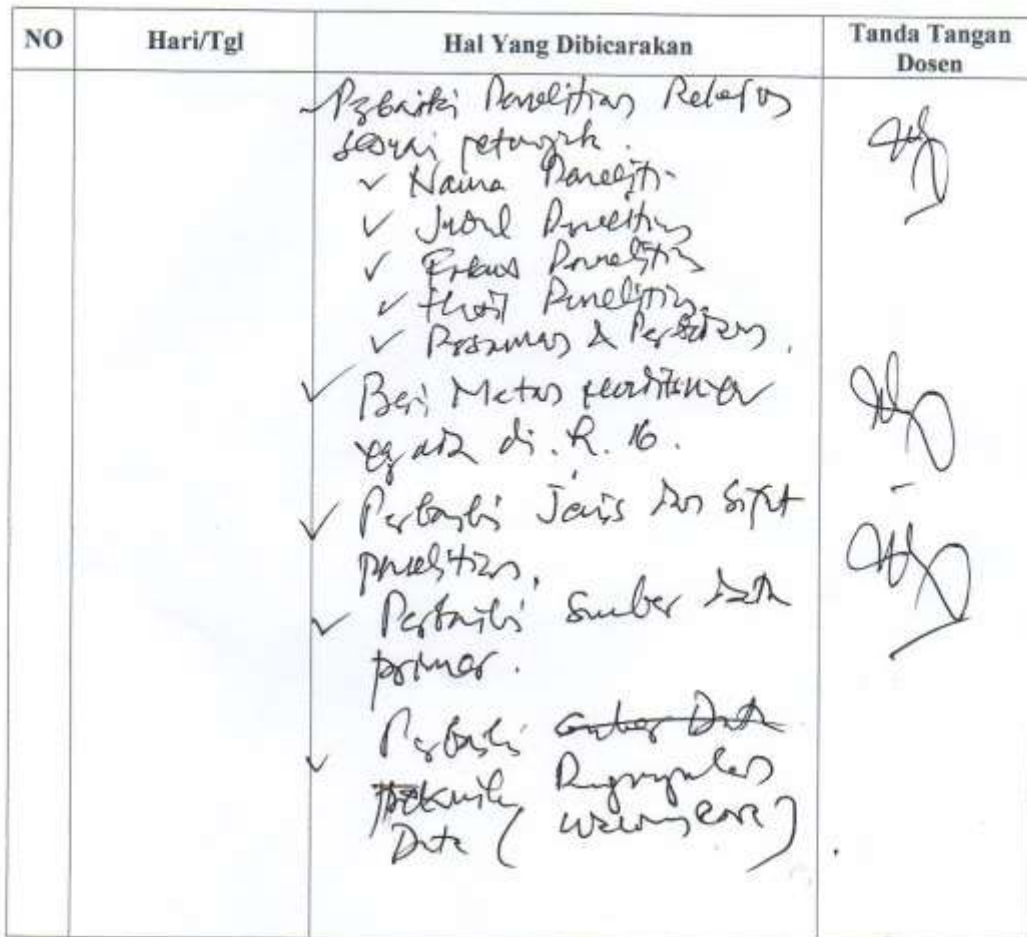 NO Hari/Tgl Hal Yang Dibicarakan Tanda Tangan Dosen
Perbaiki Penelitian Relevan
sesuai petunjuk.
✓ Nama Peneliti
✓ Judul Penelitian
✓ Fokus Penelitian
✓ Hasil Penelitian
✓ Persamaan & Perbedaan.
✓ Beri
di. R. 16.
✓ Perbaiki Jenis dan Sifat
penelitian.
✓ Perbaiki Sumber Data
primer.
✓ Perbaiki Sumber Data
Teknik Pengumpulan
Data (wawancara).